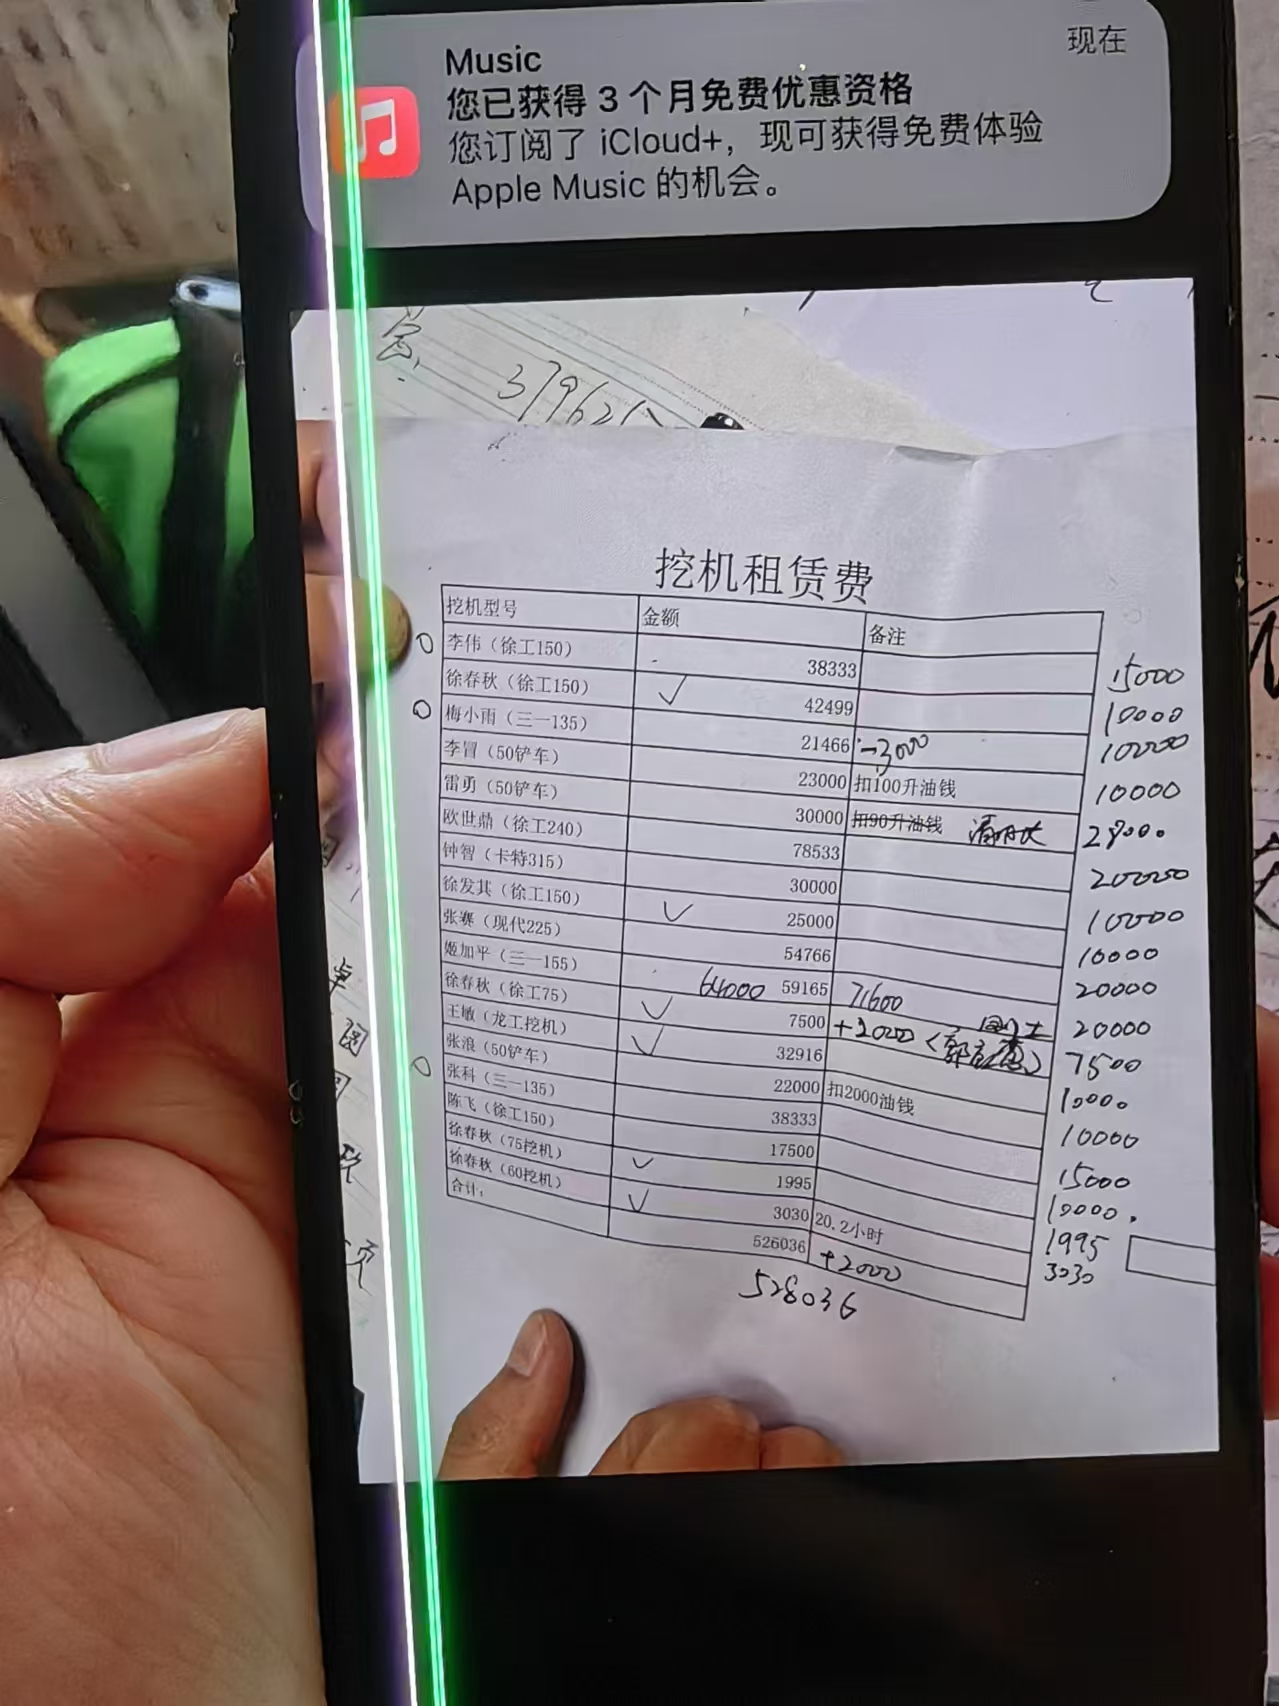 Music 现在
您已获得 3 个月免费优惠资格
您订阅了 iCloud+，现可获得免费体验
Apple Music 的机会。
挖机租赁费
挖机型号 金额 备注
李伟（徐工150） 38333 15000
徐春秋（徐工150） ✓ 42499 10000
梅小雨（三一135） 21466 -3000 10000
李冒（50铲车） 23000 扣100升油钱 10000
雷勇（50铲车） 30000 扣90升油钱 28000
欧世鼎（徐工240） 78533 20000
钟智（卡特315） 30000 10000
徐发其（徐工150） ✓ 25000 10000
张赛（现代225） 54766 20000
姬加平（三一155） 64000 59165 71600 20000
徐春秋（徐工75） ✓ 7500 +2000 7500
王敏（龙工挖机） ✓ 32916 10000
张浪（50铲车） 22000 扣2000油钱 10000
张科（三一135） 38333 15000
陈飞（徐工150） 17500 10000.
徐春秋（75挖机） ✓ 1995 1995
徐春秋（60挖机） ✓ 3030 20.2小时 3030
合计： 526036 +2000
528036